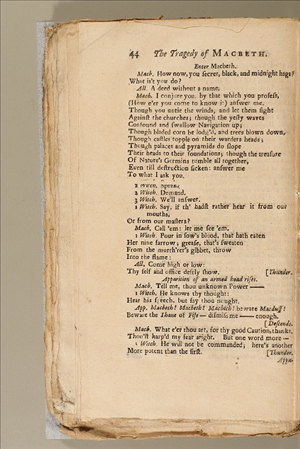 44 The Tragedy of MACBETH.
Enter Macbeth.
Macb. How now, you secret, black, and midnight hags?
What is't you do?
All. A deed without a name.
Macb. I conjure you, by that which you profess,
(How e'er you come to know it) answer me.
Though you untie the winds, and let them fight
Against the churches; though the yesty waves
Confound and swallow Navigation up;
Though bladed corn be lodg'd, and trees blown down,
Though castles topple on their warders heads;
Though palaces and pyramids do slope
Their heads to their foundations; though the treasure
Of Nature's Germins tumble all together,
Even till destruction sicken: answer me
To what I ask you.
1 Witch. Speak.
2 Witch. Demand.
3 Witch. We'll answer.
1 Witch. Say, if th' hadst rather hear it from our
mouths,
Or from our masters?
Macb. Call 'em: let me see 'em.
1 Witch Pour in sow's blood, that hath eaten
Her nine farrow; grease, that's sweaten
From the murth'rer's gibbet, throw
Into the flame:
All. Come high or low:
Thy self and office deftly show. [Thunder.
Apparition of an armed head rises.
Macb. Tell me, thou unknown Power——
1 Witch. He knows thy thought:
Hear his speech, but say thou nought.
App. Macbeth! Macbeth! Macbeth! beware Macduff!
Beware the Thane of Fife—dismiss me——enough.
[Descends.
Macb. What e'er thou art, for thy good Caution, thanks.
Thou'st harp'd my fear aright. But one word more—
1 Witch. He will not be commanded; here's another
More potent than the first. [Thunder.
Appa-